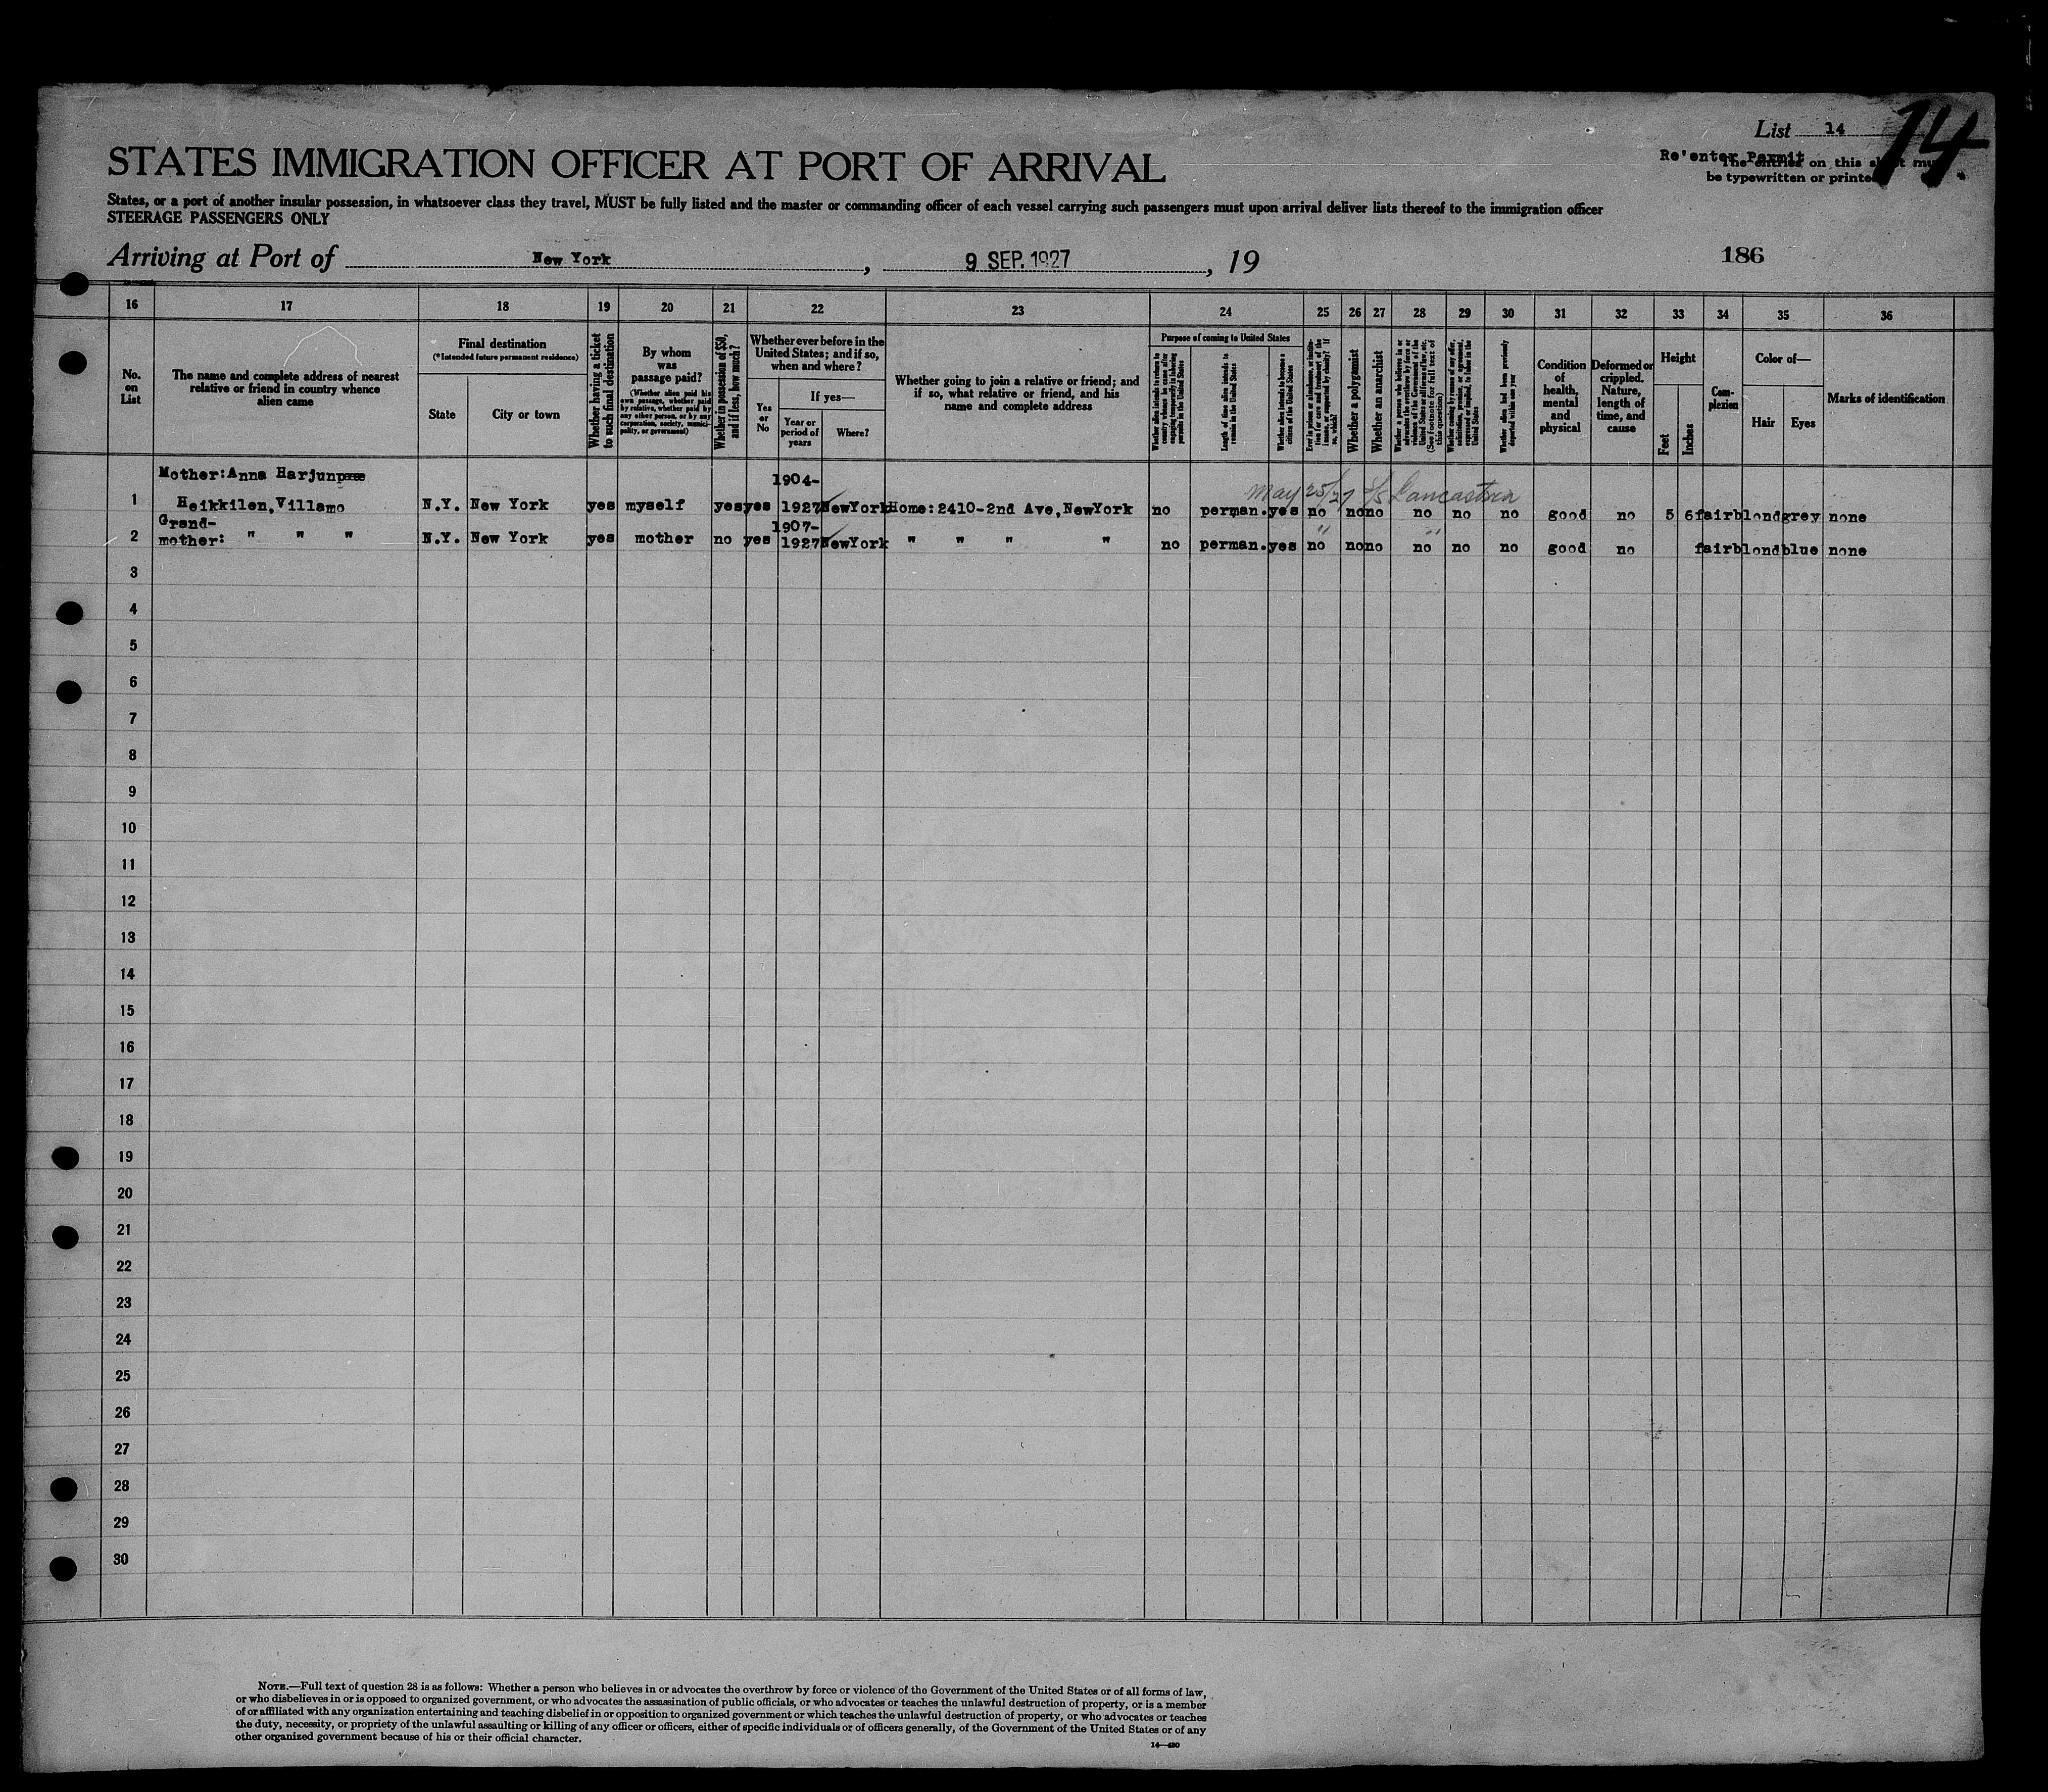 List 14
14.
Re'enter Permit
The entries on this sheet mu
be typewritten or printed
STATES IMMIGRATION OFFICER AT PORT OF ARRIVAL
States, or a port of another insular possession, in whatsoever class they travel, MUST be fully listed and the master or commanding officer of each vessel carrying such passengers must upon arrival deliver lists thereof to the immigration officer
STEERAGE PASSENGERS ONLY
Arriving at Port of New York, 9 SEP. 1927, 19
186
16 17 18 19 20 21 22 23 24 25 26 27 28 29 30 31 32 33 34 35 36
No. on List
The name and complete address of nearest
relative or friend in country whence
alien came
Final destination
(*Intended future permanent residence)
State
City or town
Whether having a ticket
to such final destination
By whom
was
passage paid?
(Whether alien paid his
own passage, whether paid
by relative, whether paid by
any other person, or by any
corporation, society, munici-
pality, or government)
Whether in possession of $50,
and if less, how much?
Whether ever before in the
United States; and if so,
when and where?
Yes
or
No
If yes—
Year or
period of
years
Where?
Whether going to join a relative or friend; and
if so, what relative or friend, and his
name and complete address
Purpose of coming to United States
Whether alien intends to return to
country whence he came after
engaging temporarily in laboring
pursuits in the United States
Length of time alien intends to
remain in the United States
Whether alien intends to become a
citizen of the United States
Ever in prison or almshouse, or institu-
tion for care and treatment of the
insane, or supported by charity? If
so, which?
Whether a polygamist
Whether an anarchist
Whether a person who believes in or
advocates the overthrow by force or
violence of the Government of the
United States or all forms of law, etc.
(See footnote for full text of
this question)
Whether coming by reason of any offer,
solicitation, promise, or agreement,
expressed or implied, to labor in the
United States
Whether alien had been previously
deported within one year
Condition
of
health,
mental
and
physical
Deformed or
crippled.
Nature,
length of
time, and
cause
Height
Feet
Inches
Com-
plexion
Color of—
Hair
Eyes
Marks of identification
Mother:Anna Harjunpaa 1904-
May 25/27 S/S Lancastria
1 Heikkilen,Villamo N.Y. New York yes myself yes yes 1927 NewYork Home:2410-2nd Ave,NewYork no perman. yes no no no no no no good no 5 6 fair blond grey none
Grand- 1907-
2 mother: " " " N.Y. New York yes mother no yes 1927 NewYork " " " " no perman. yes no no no no no no good no fair blond blue none
" "
3
4
5
6
7
8
9
10
11
12
13
14
15
16
17
18
19
20
21
22
23
24
25
26
27
28
29
30
NOTE.—Full text of question 28 is as follows: Whether a person who believes in or advocates the overthrow by force or violence of the Government of the United States or of all forms of law,
or who disbelieves in or is opposed to organized government, or who advocates the assassination of public officials, or who advocates or teaches the unlawful destruction of property, or is a member
of or affiliated with any organization entertaining and teaching disbelief in or opposition to organized government or which teaches the unlawful destruction of property, or who advocates or teaches
the duty, necessity, or propriety of the unlawful assaulting or killing of any officer or officers, either of specific individuals or of officers generally, of the Government of the United States or of any
other organized government because of his or their official character.
14—430